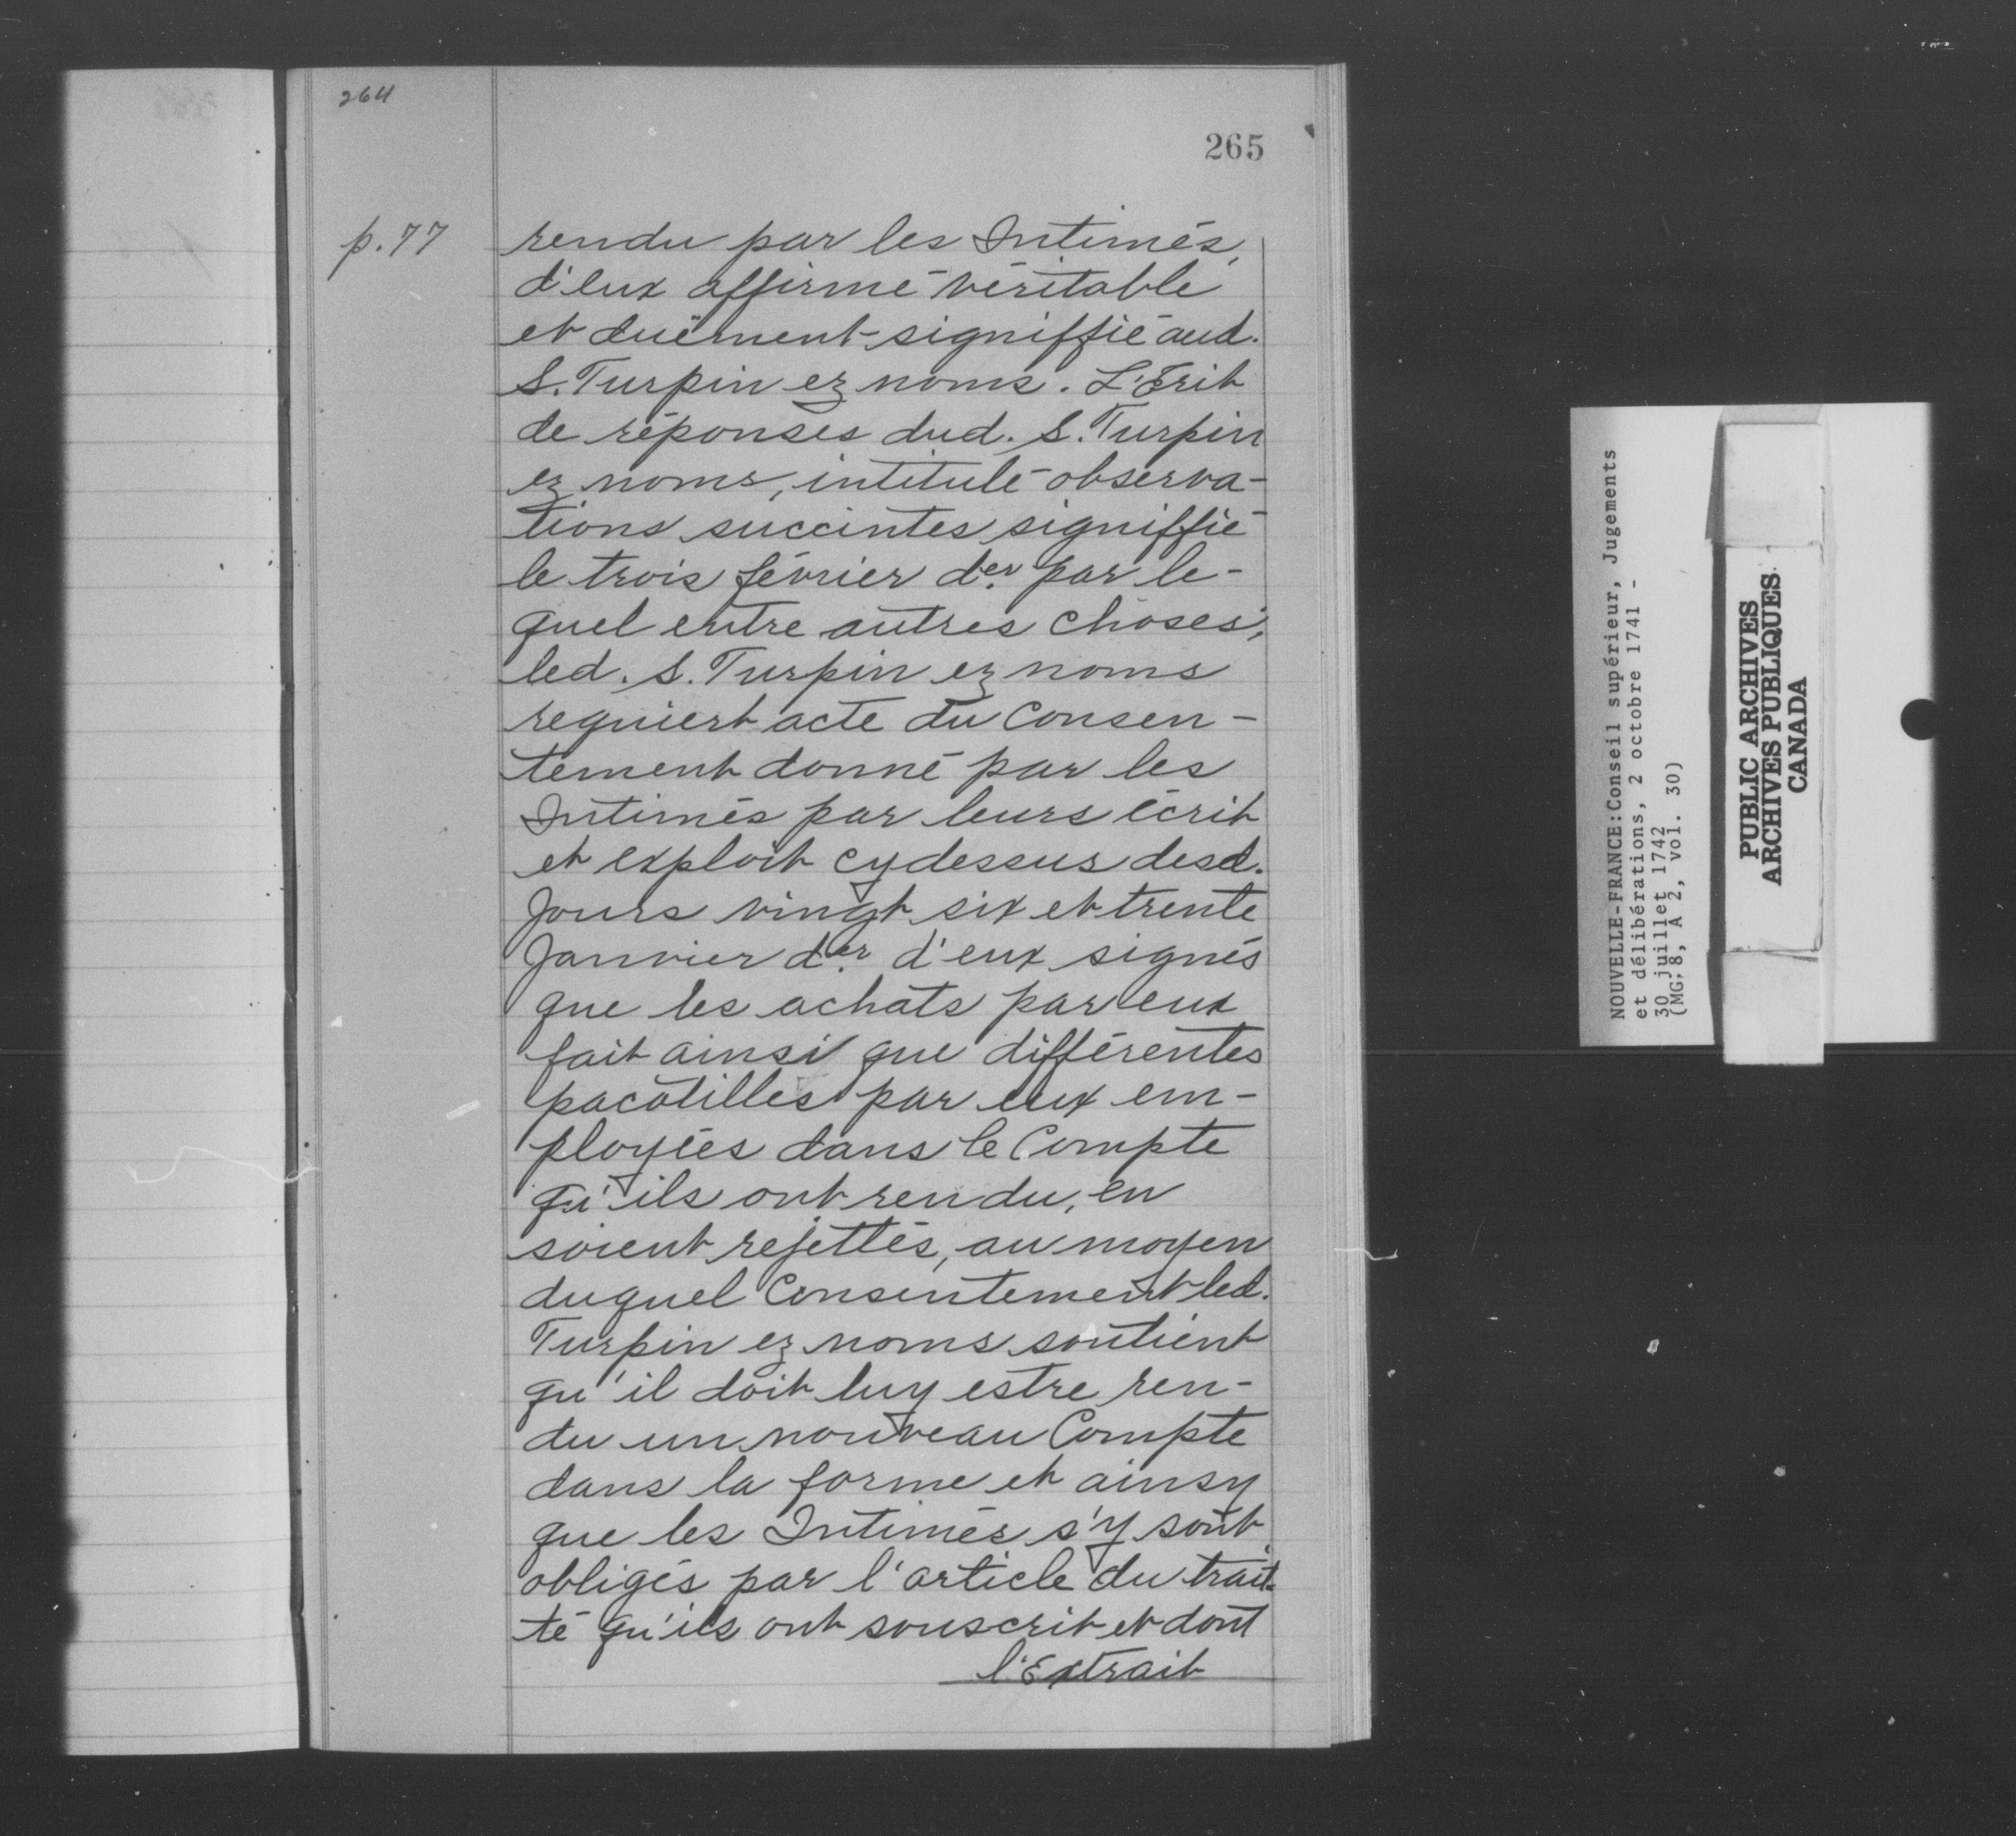 264
265
p. 77
rendu par les Intimés,
d'eux affirmé véritable
et duëment signiffié aud.
S. Turpin ez noms. L'Erit
de réponses dud. S. Turpin
ez noms, intitulé observa-
tions succintes signiffié
le trois février der. par le-
quel entre autres choses,
led. S. Turpin ez noms
requiert acte du Consen-
tement donné par les
Intimés par leurs écrit
et exploit cy dessus desd.
Jours vingt six et trente
Janvier der. d'eux signés
que les achats par eux
fait ainsi que différentes
pacotilles par eux em-
ployées dans le Compte
qu'ils ont rendu, en
soient rejettés, au moyen
duquel Consentement led.
Turpin ez noms soutient
qu'il doit luy estre ren-
du un nouveau Compte
dans la forme et ainsy
que les Intimés s'y sont
obligés par l'article du trait-
té qu'ils ont souscrit et dont
l'Extrait
NOUVELLE-FRANCE:Conseil supérieur, Jugements
et délibérations, 2 octobre 1741 -
30 juillet 1742
(MG 8, A 2, vol. 30)
PUBLIC ARCHIVES
ARCHIVES PUBLIQUES
CANADA